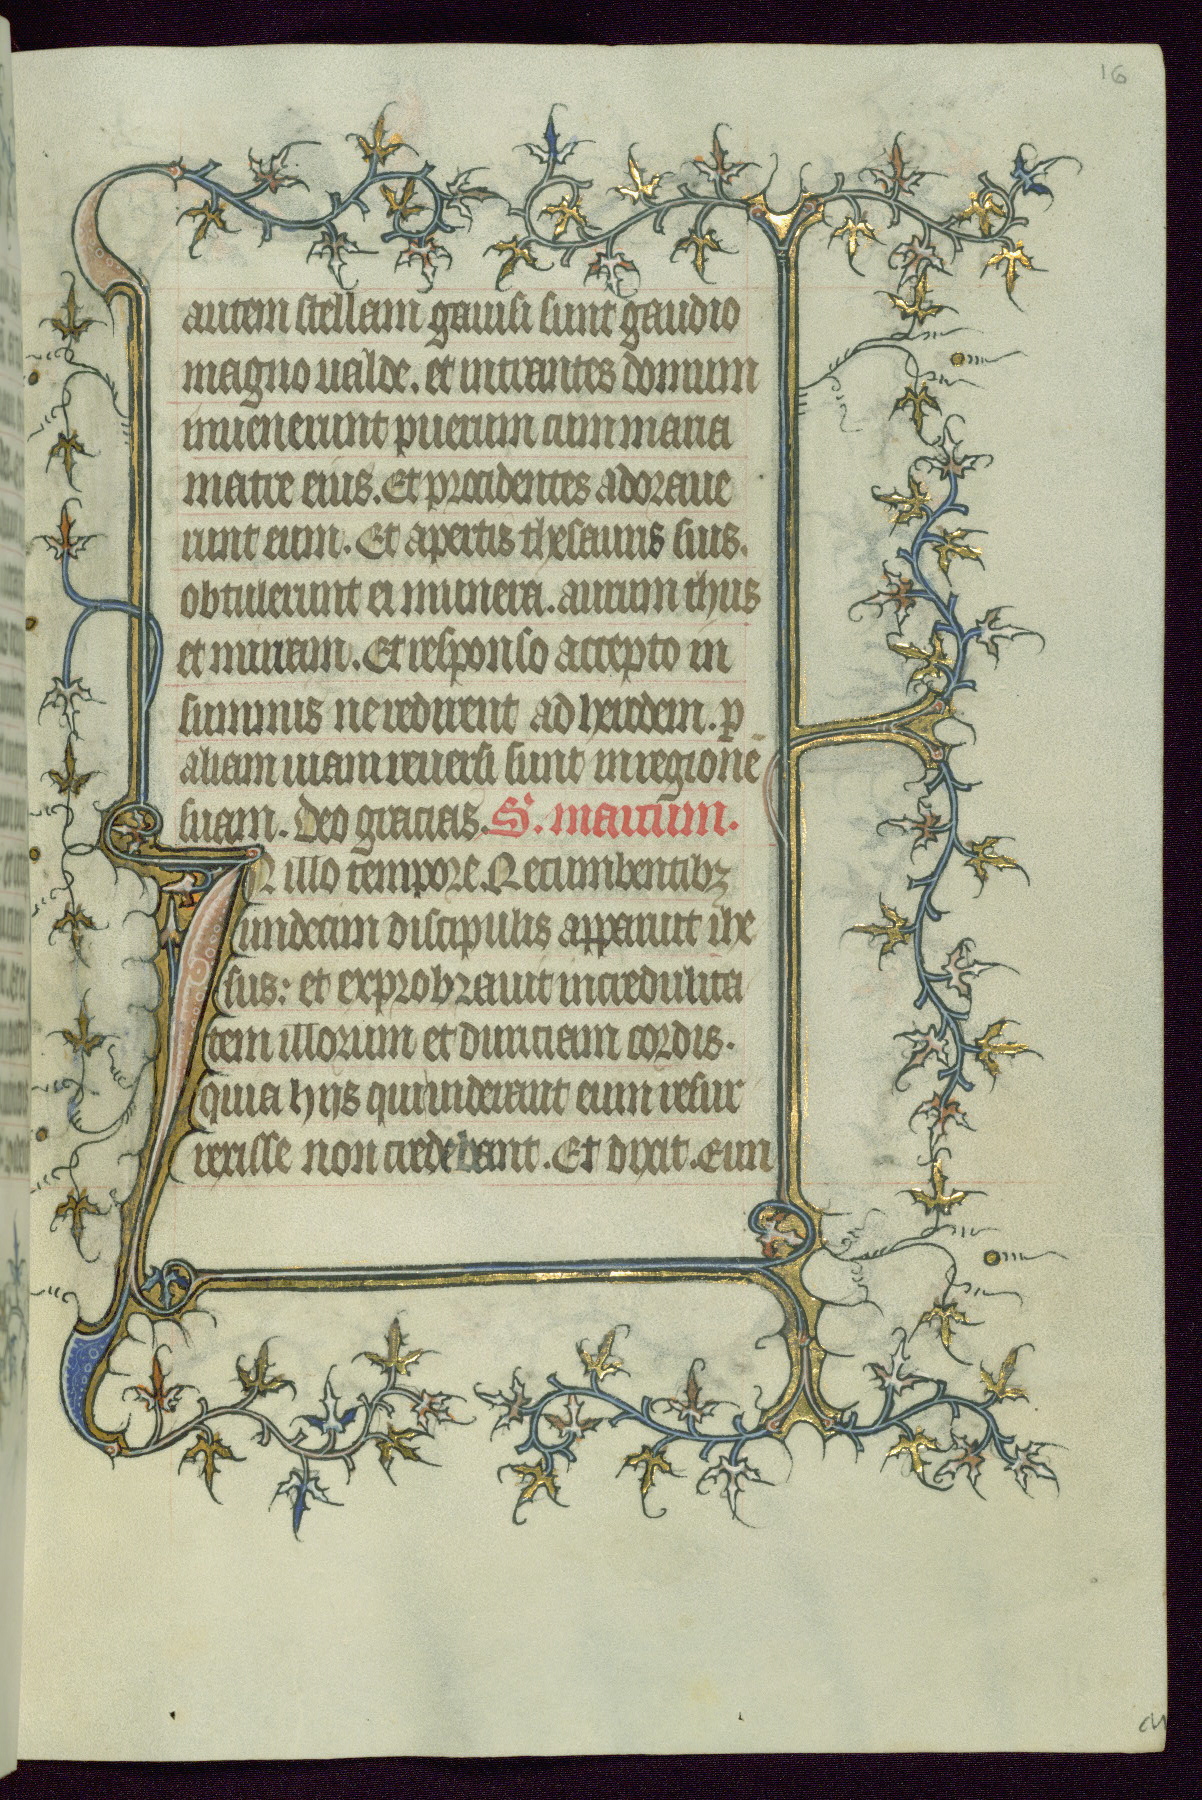 16
autem stellam gauisi sunt gaudio
magno ualde. et intrantes domum
inuenerunt puerum cum maria
matre eius. Et procidentes adoraue
runt eum. Et apertis thesauris suis.
obtulerunt ei munera. aurum thus
et mirram. Et responso accepto in
sumnis ne redirent ad herodem. ꝑ
aliam uiam reuersi sunt in regionē
suam. Deo gracias. S. marcum.
IN illo tempore. Recumbentibꝫ
undecim discipulis apparuit ihe
sus: et exprobrauit incredulita
tem illorum et duriciam cordis.
quia hijs qui uiderant eum resur
rexisse non credebant. Et dixit. Eun